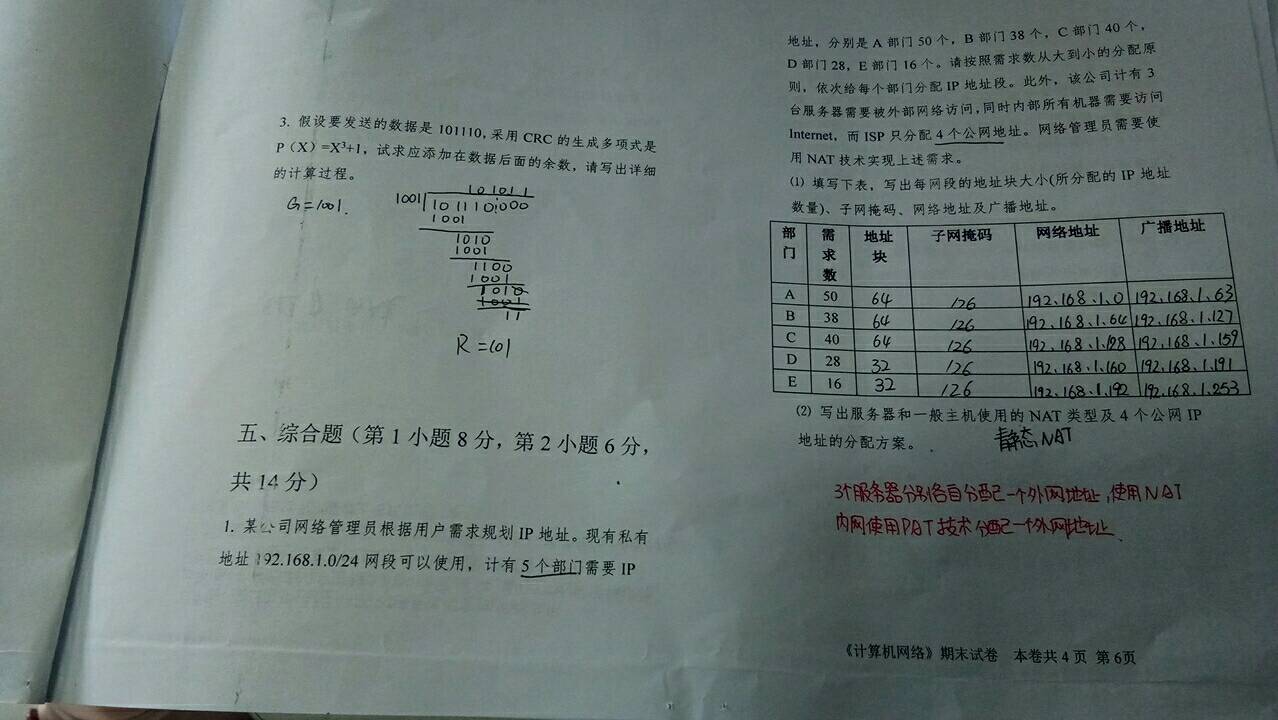 3. 假设要发送的数据是 101110, 采用 CRC 的生成多项式是
P（X）=X³+1，试求应添加在数据后面的余数，请写出详细
的计算过程。
G=1001.
101011
1001 101110000
1001
1010
1001
1100
1001
1010
1001
11
R=101
五、综合题（第 1 小题 8 分，第 2 小题 6 分，
共 14 分）
1. 某公司网络管理员根据用户需求规划 IP 地址。现有私有
地址 192.168.1.0/24 网段可以使用，计有 5 个部门需要 IP
地址，分别是 A 部门 50 个，B 部门 38 个，C 部门 40 个，
D 部门 28，E 部门 16 个。请按照需求数从大到小的分配原
则，依次给每个部门分配 IP 地址段。此外，该公司计有 3
台服务器需要被外部网络访问，同时内部所有机器需要访问
Internet，而 ISP 只分配 4 个公网地址。网络管理员需要使
用 NAT 技术实现上述需求。
⑴ 填写下表，写出每网段的地址块大小(所分配的 IP 地址
数量)、子网掩码、网络地址及广播地址。
部门 需求数 地址块 子网掩码 网络地址 广播地址
A 50 64 126 192.168.1.0 192.168.1.63
B 38 64 126 192.168.1.64 192.168.1.127
C 40 64 126 192.168.1.128 192.168.1.159
D 28 32 126 192.168.1.160 192.168.1.191
E 16 32 126 192.168.1.192 192.168.1.253
⑵ 写出服务器和一般主机使用的 NAT 类型及 4 个公网 IP
地址的分配方案。 静态NAT
3个服务器分别各自分配一个外网地址,使用NAT
内网使用PAT技术分配一个外网地址.
《计算机网络》期末试卷 本卷共 4 页 第 6页